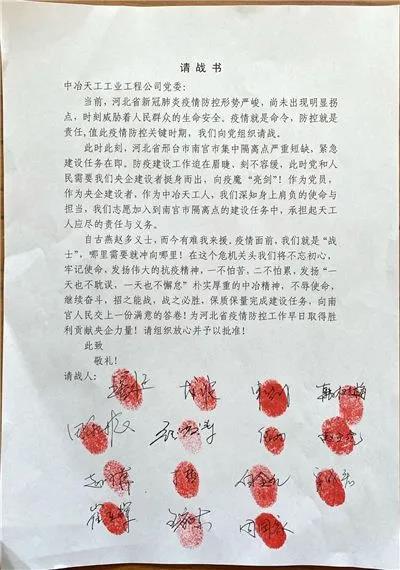 请战书
中冶天工工业工程公司党委:
当前,河北省新冠肺炎疫情防控形势严峻,尚未出现明显拐
点,时刻威胁着人民群众的生命安全。疫情就是命令,防控就是
责任,值此疫情防控关键时期,我们向党组织请战。
此时此刻,河北省邢台市南宫市集中隔离点严重短缺,紧急
建设任务在即。防疫建设工作迫在眉睫、刻不容缓,此时党和人
民需要我们央企建设者挺身而出,向疫魔“亮剑”!作为党员,
作为央企建设者,作为中冶天工人,我们深知身上肩负的使命与
担当,我们志愿加入到南宫市隔离点的建设任务中,承担起天工
人应尽的责任与义务。
自古燕赵多义士,而今有难我来援。疫情面前,我们就是“战
士”,哪里需要就冲向哪里!在这个危机关头我们将不忘初心,
牢记使命,发扬伟大的抗疫精神,一不怕苦,二不怕累,发扬“一
天也不耽误,一天也不懈怠”朴实厚重的中冶精神,不辱使命,
继续奋斗,招之能战,战之必胜,保质保量完成建设任务,向南
宫人民交上一份满意的答卷!为河北省疫情防控工作早日取得胜
利贡献央企力量!请组织放心并予以批准!
此致
敬礼!
请战人: